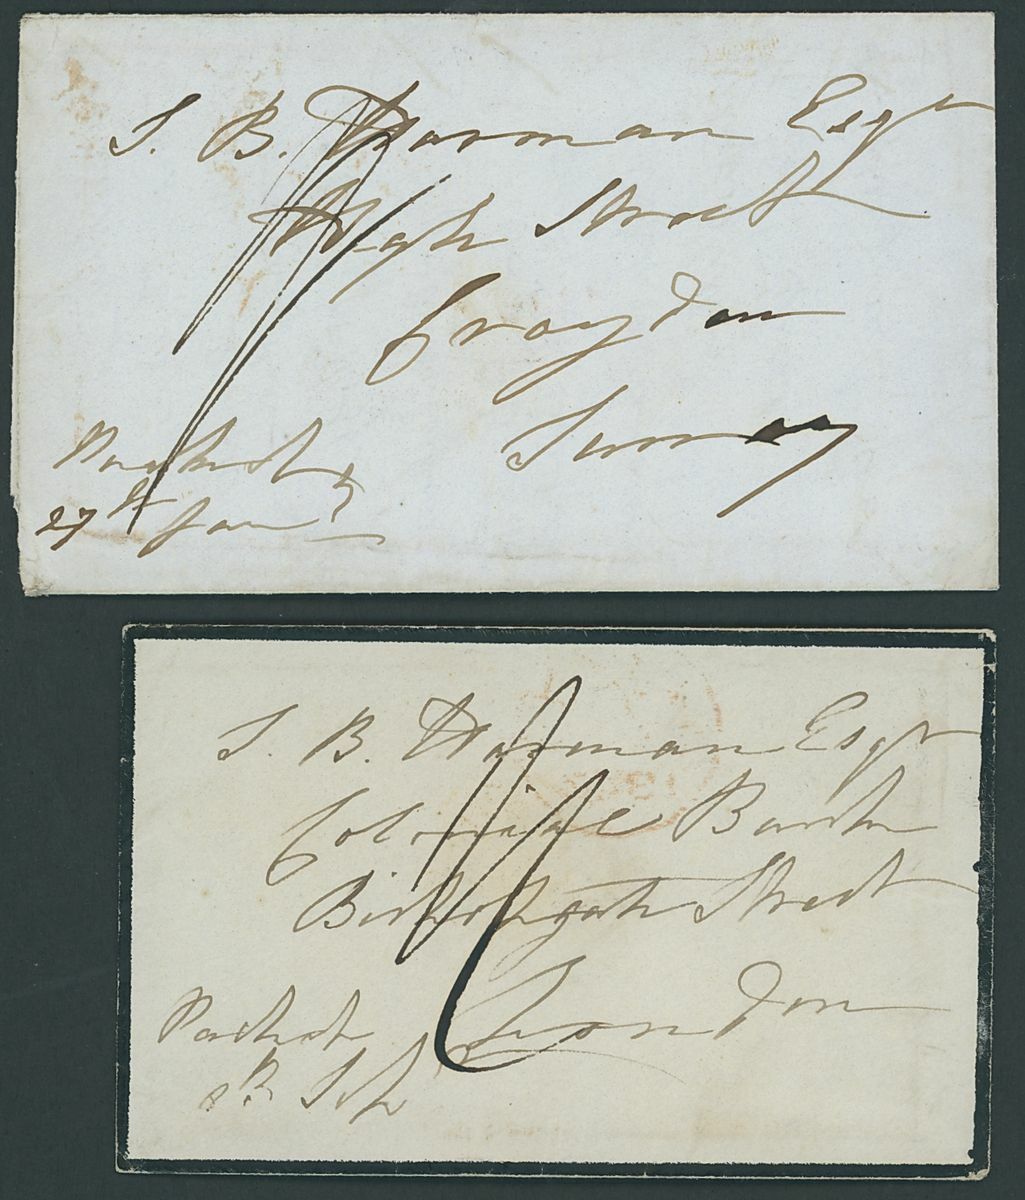 S. B. Harman Esqr
High Street
Croydon
Surrey
Packet
27th Jan
S. B. Harman Esqr
Colonial Bank
Bishopgate Street
London
Packet